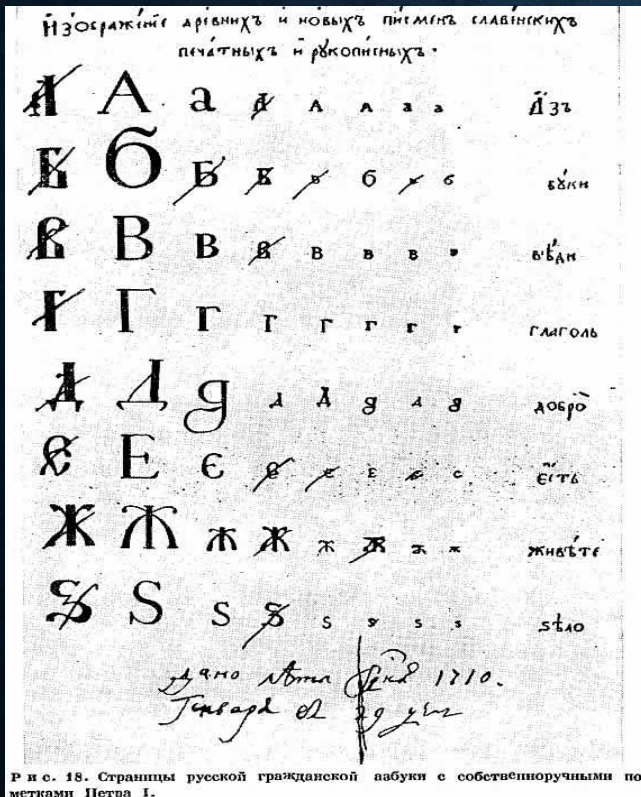 Изображенїе древнихъ и новыхъ писменъ славенскихъ
печатныхъ и рукописныхъ.
А А а а А А а а Азъ
Б Б Б Б Б Б Б Б буки
В В В В В В В В вѣди
Г Г Г Г Г Г Г Г глаголь
Д Д д Д Д д Д д добро
Е Е Є Е Е Є Е Є єсть
Ж Ж Ж Ж Ж Ж Ж Ж живѣте
Ѕ Ѕ Ѕ Ѕ Ѕ Ѕ Ѕ Ѕ ѕѣло
дано лѣта 1710.
Генваря въ 29 день
Рис. 18. Страницы русской гражданской азбуки с собственноручными по
метками Петра I.